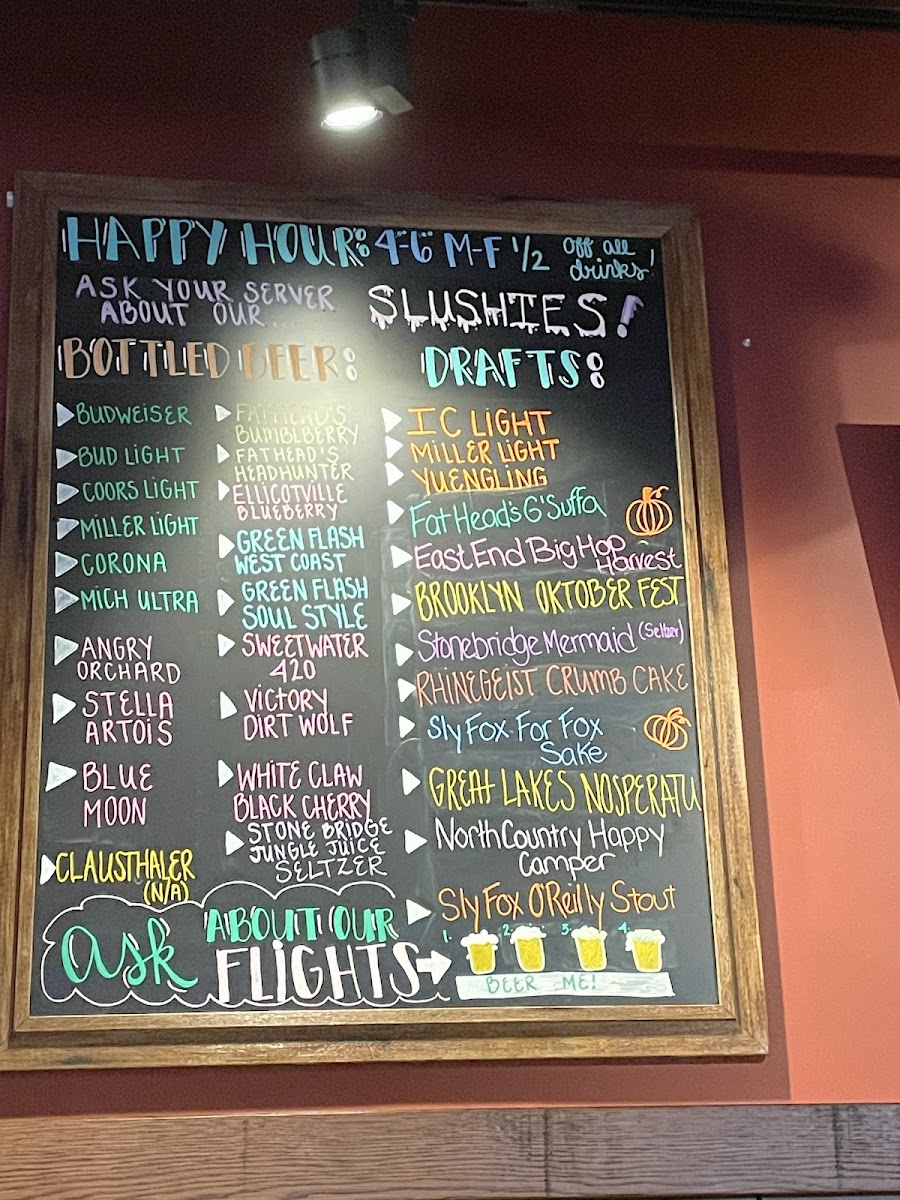 HAPPY HOUR: 4-6 M-F 1/2 off all
drinks!
ASK YOUR SERVER
ABOUT OUR...
SLUSHIES!
BOTTLED BEER:
BUDWEISER
BUD LIGHT
COORS LIGHT
MILLER LIGHT
CORONA
MICH ULTRA
ANGRY
ORCHARD
STELLA
ARTOIS
BLUE
MOON
CLAUSTHALER
(N/A)
FATHEAD'S
BUMBLBERRY
FATHEAD'S
HEADHUNTER
ELLICOTVILLE
BLUEBERRY
GREEN FLASH
WEST COAST
GREEN FLASH
SOUL STYLE
SWEETWATER
420
VICTORY
DIRT WOLF
WHITE CLAW
BLACK CHERRY
STONE BRIDGE
JUNGLE JUICE
SELTZER
DRAFTS:
IC LIGHT
MILLER LIGHT
YUENGLING
Fat Head's G'Suffa
East End Big Hop
Harvest
BROOKLYN OKTOBER FEST
Stonebridge Mermaid (Seltzer)
RHINEGEIST CRUMB CAKE
Sly Fox For Fox
Sake
GREAT LAKES NOSPERATU
North Country Happy
Camper
Sly Fox O'Reilly Stout
Ask ABOUT OUR
FLIGHTS
1. 2. 3. 4.
BEER ME!